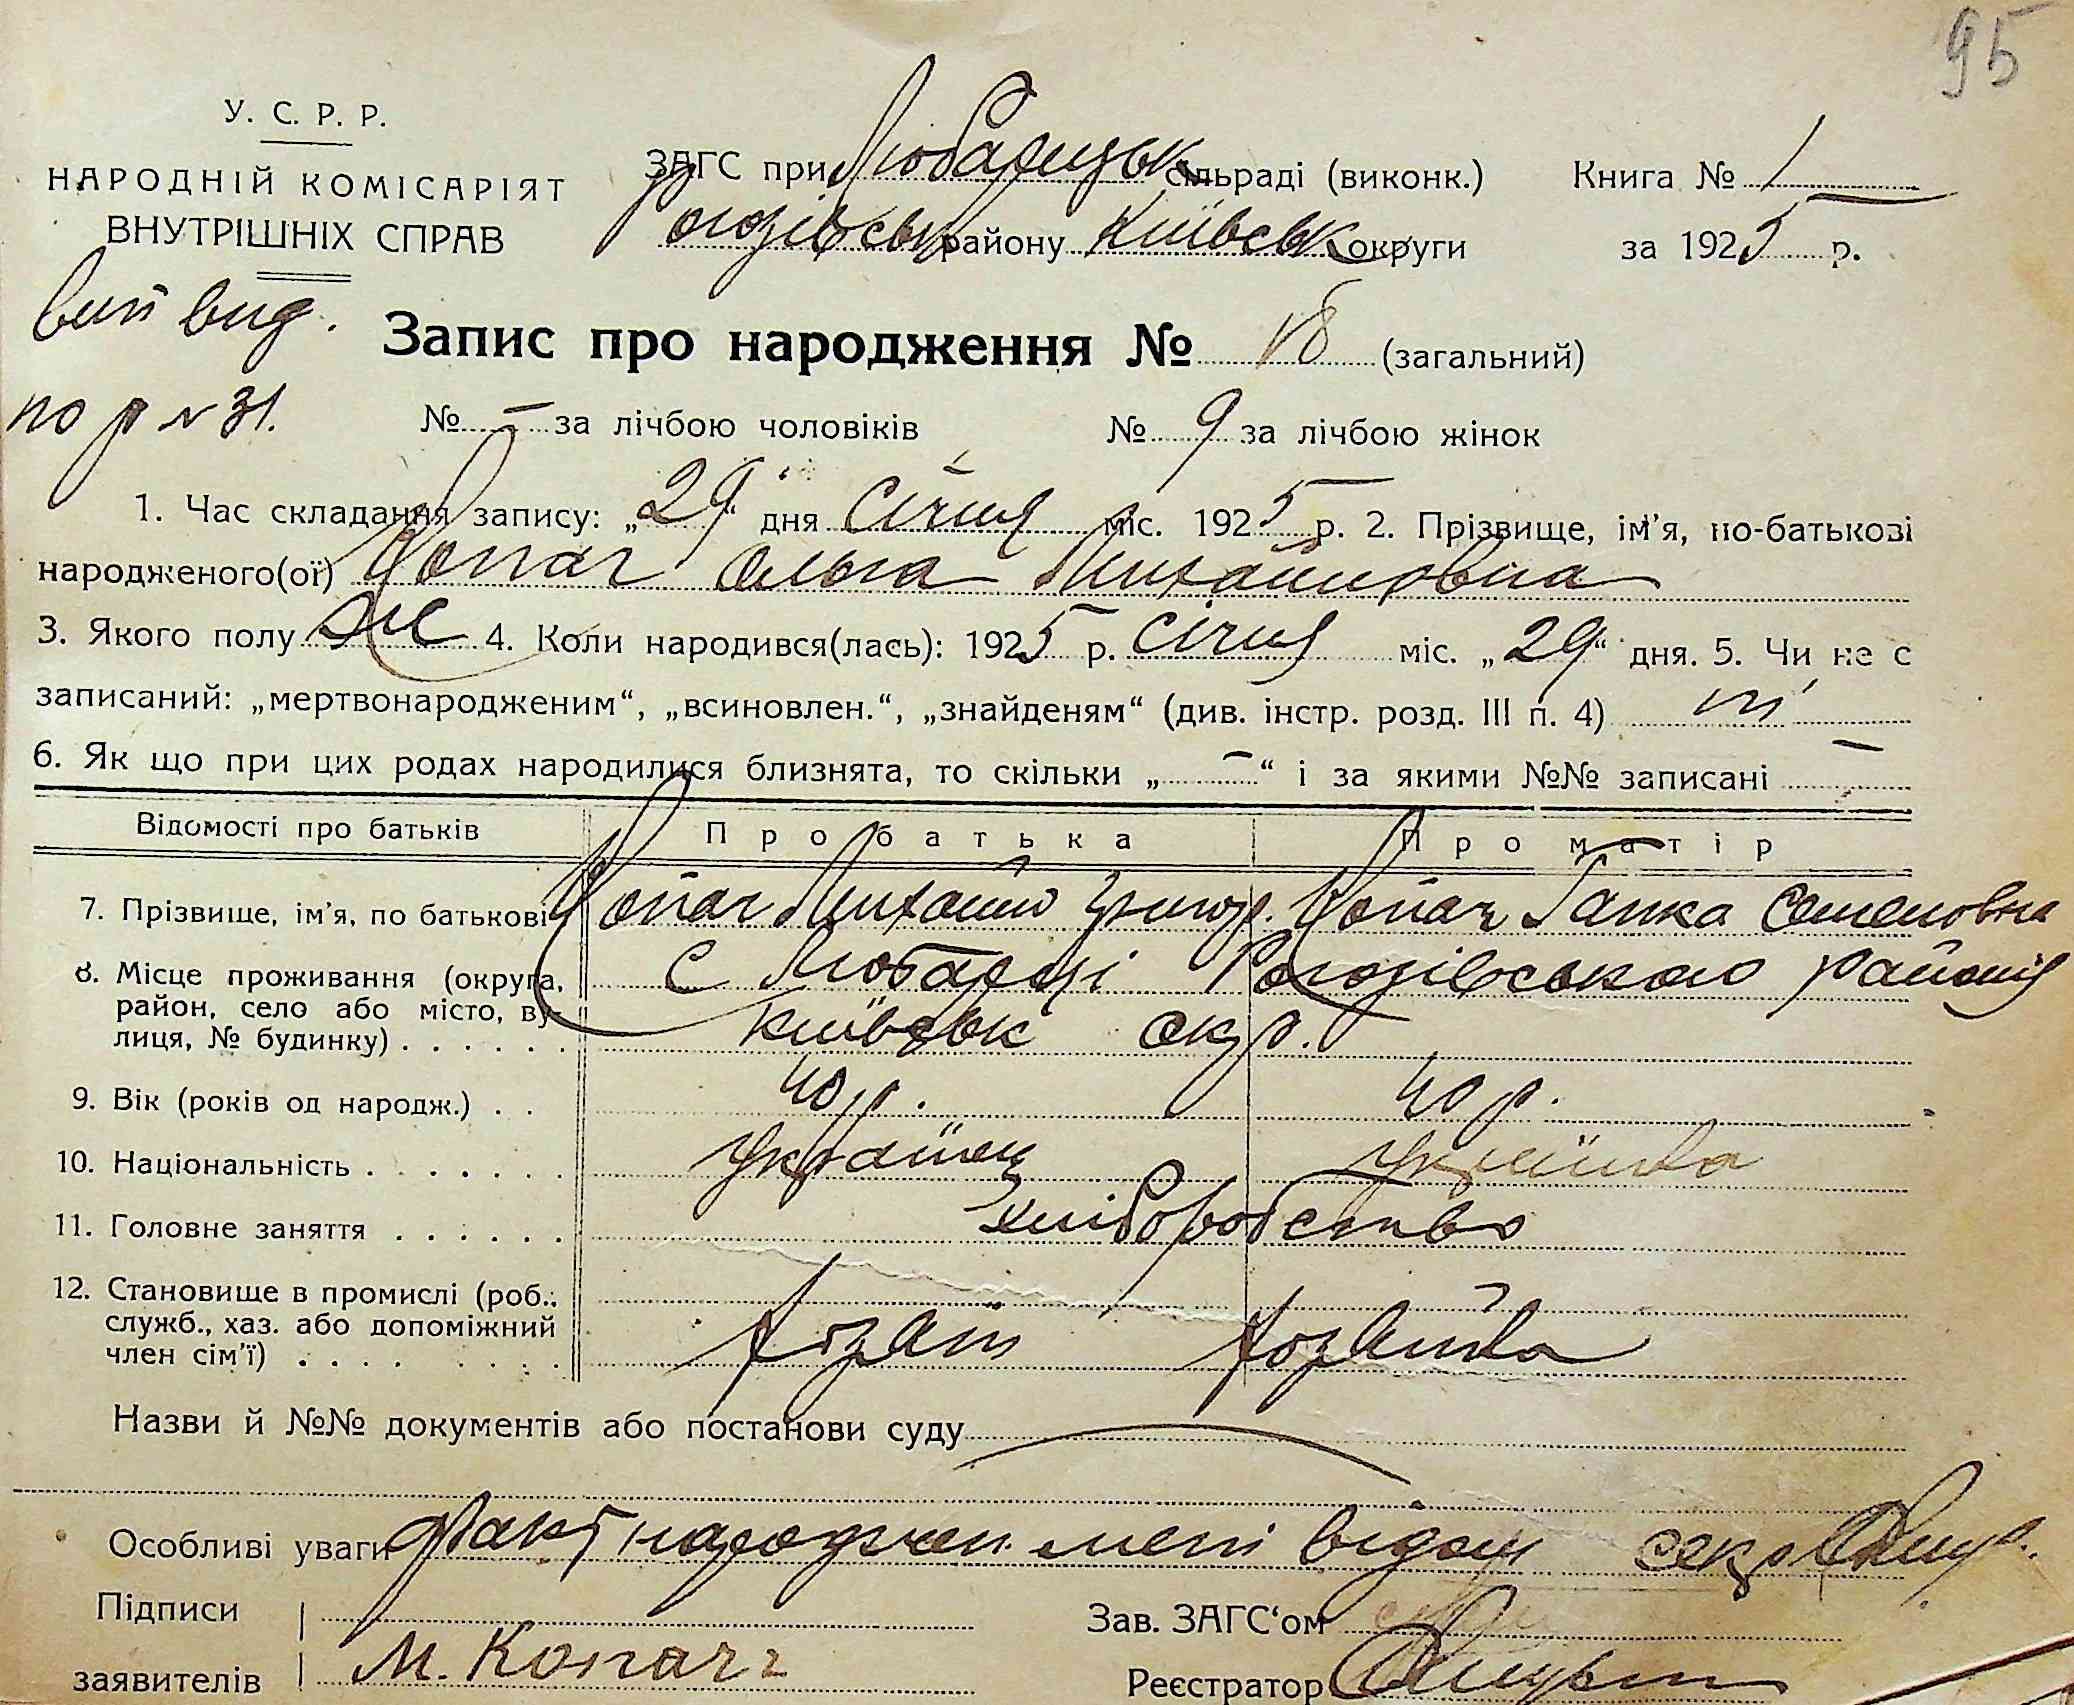 95
У. С. Р. Р.
НАРОДНІЙ КОМІСАРІЯТ
ВНУТРІШНІХ СПРАВ
ЗАГС при Любарецьк сільраді (виконк.)
Рогозівськ району Київськ округи
Книга № 1
за 1925 р.
вип вид.
по р № 31.
Запис про народження № 18 (загальний)
№ – за лічбою чоловіків № 9 за лічбою жінок
1. Час складання запису: „29“ дня Січня міс. 1925 р. 2. Прізвище, ім'я, по-батькові
народженого(ої) Копач Ольга Михайловна
3. Якого полу ж 4. Коли народився(лась): 1925 р. Січня міс. „29“ дня. 5. Чи не є
записаний: „мертвонародженим“, „всиновлен.“, „знайденям“ (див. інстр. розд. III п. 4) ні
6. Як що при цих родах народилися близнята, то скільки „–“ і за якими №№ записані –
Відомості про батьків Про батька Про матір
7. Прізвище, ім'я, по батькові Копач Михайло Григор. Копач Гапка Семеновна
8. Місце проживання (округа, район, село або місто, вулиця, № будинку) . . . . . . С Любарці Рогозівського району
Київськ окр.
9. Вік (років од народж.) . . 40 р. 40 р.
10. Національність . . . . . . . Українец Українка
11. Головне заняття . . . . . . Хліборобство
12. Становище в промислі (роб., служб., хаз. або допоміжний член сім'ї) . . . . Хозаїн Хозайка
Назви й №№ документів або постанови суду
Особливі уваги Факт народжен. мені відом секр
Підписи заявителів М. Копачь
Зав. ЗАГС'ом
Реєстратор